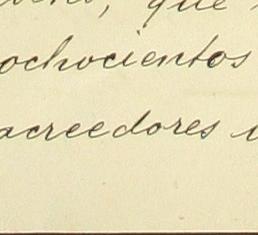 que
ochocientos
acreedores